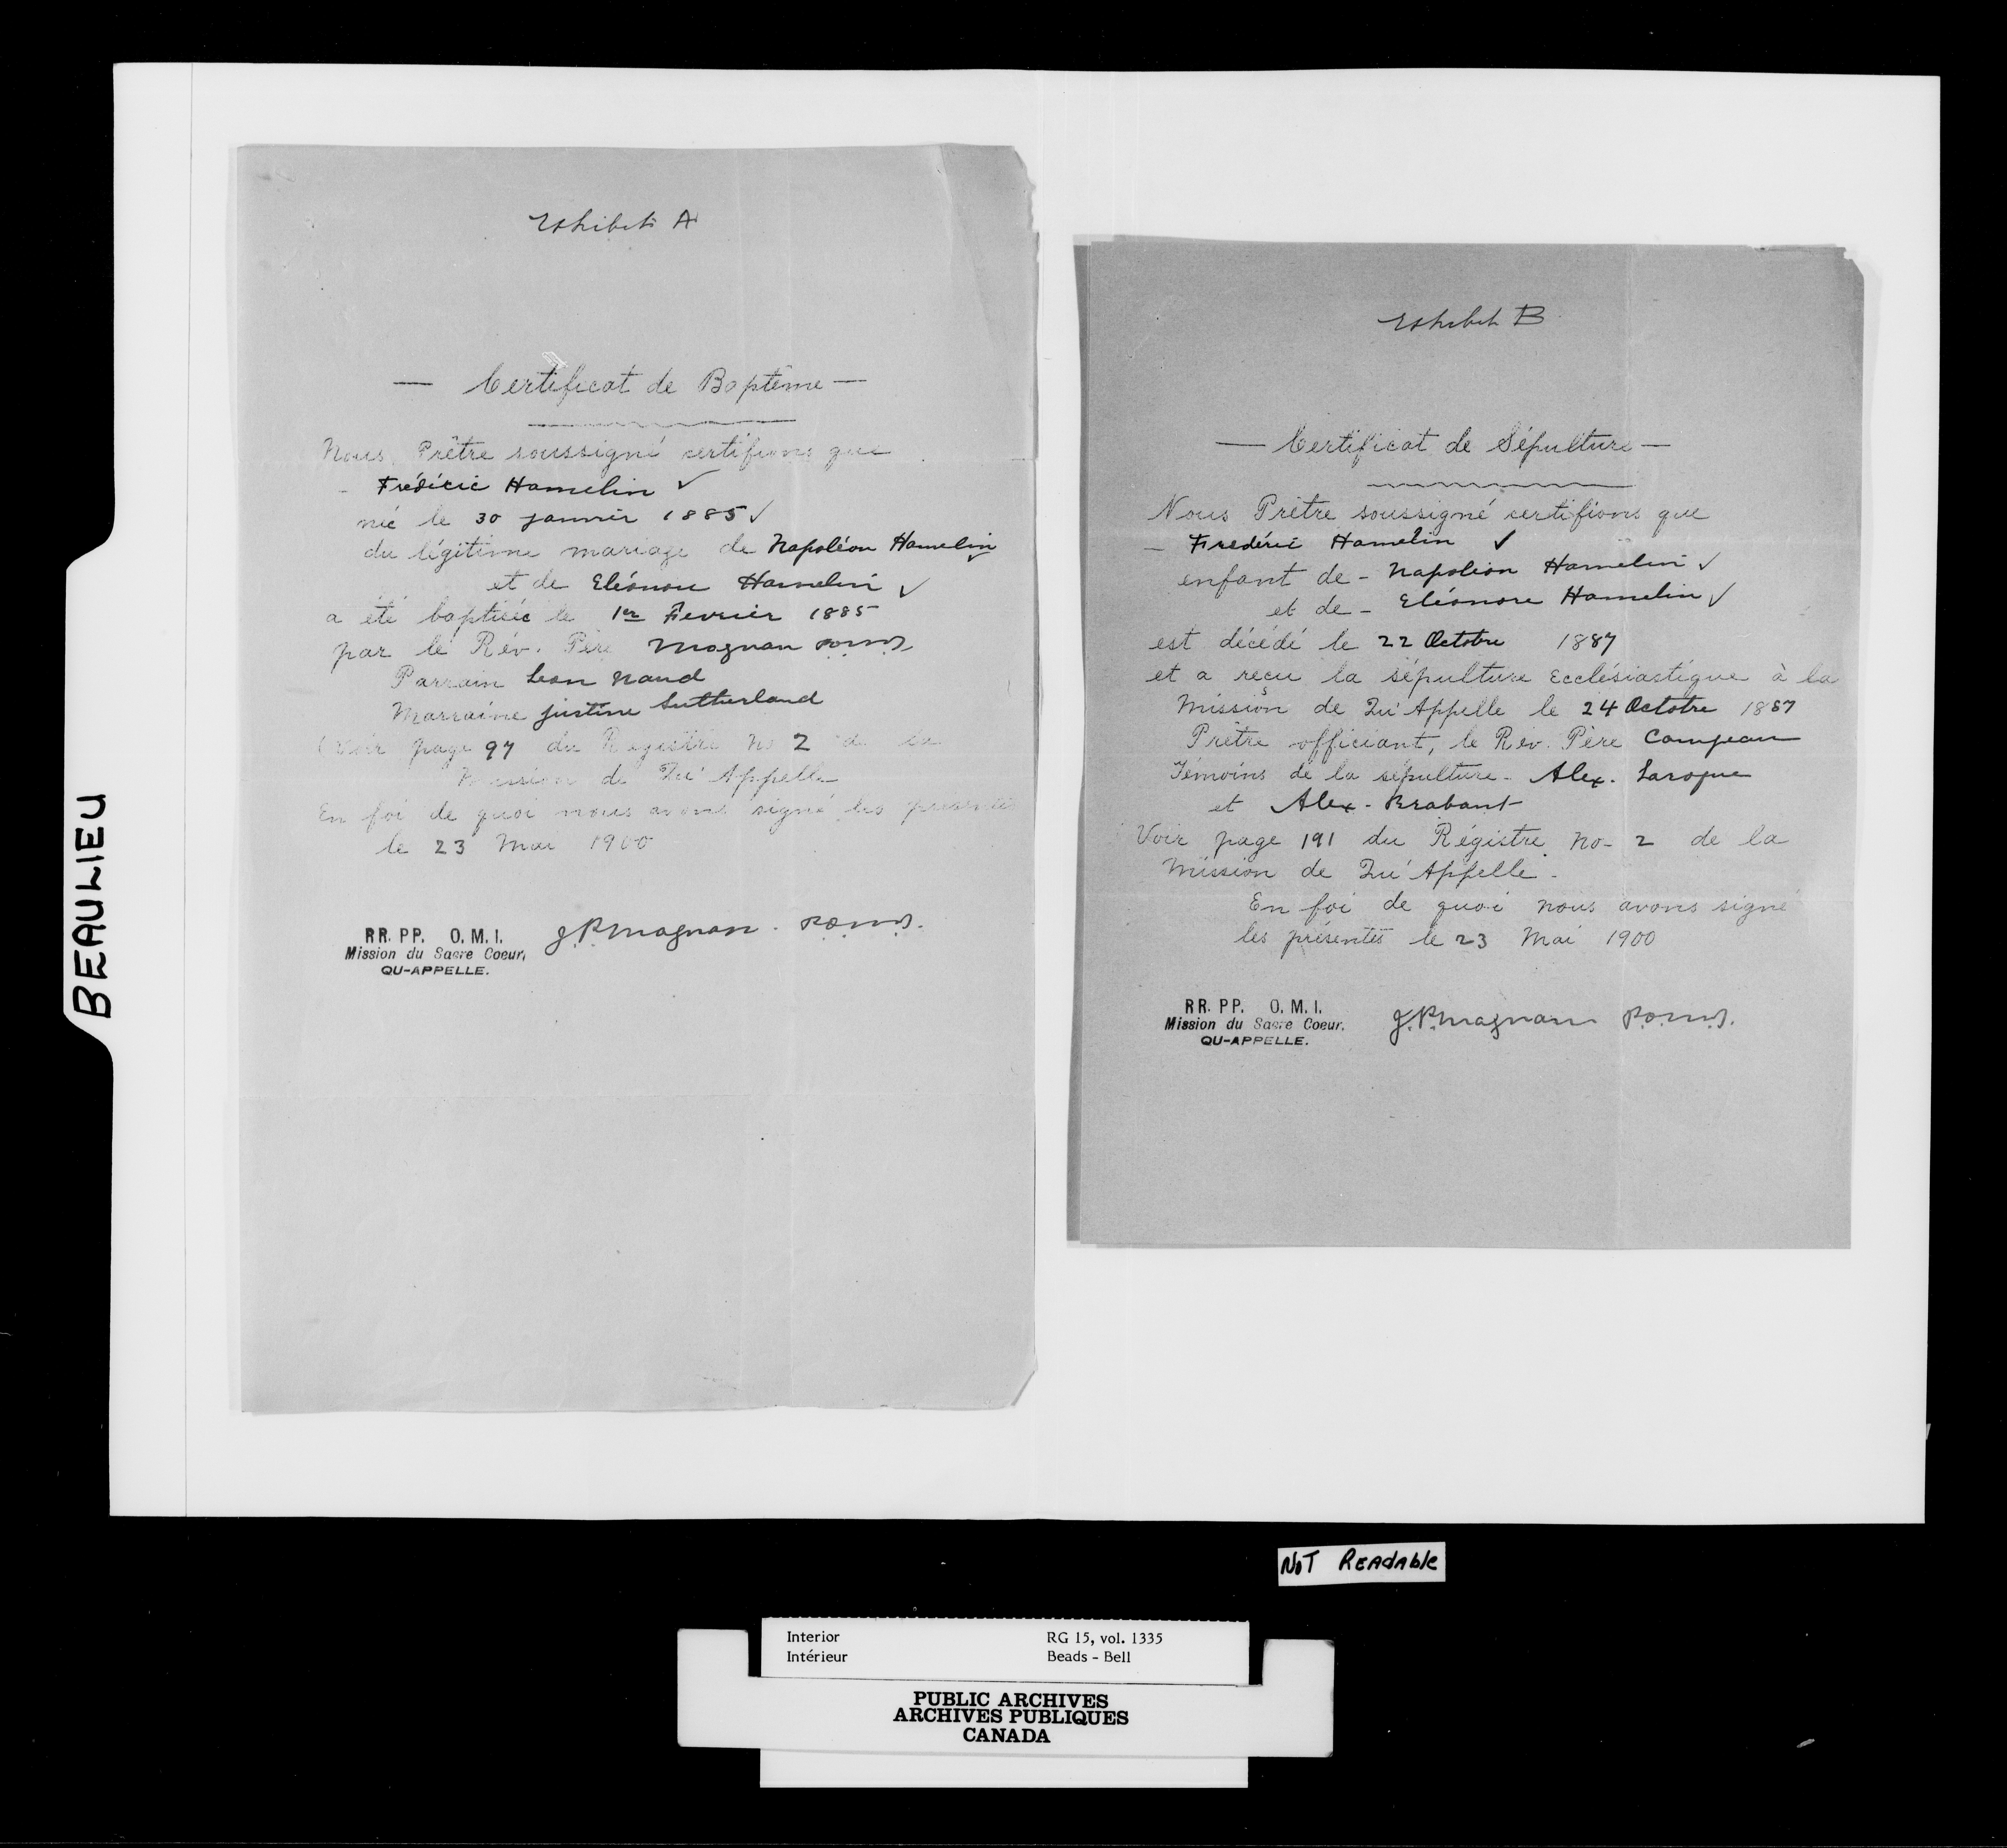 BEAULIEU
Exhibit A
— Certificat de Baptême —
Nous, Prêtre soussigné certifions que
- Frédéric Hamelin ✓
né le 30 janvier 1885 ✓
du légitime mariage de Napoléon Hamelin ✓
et de Eléonore Hamelin ✓
a été baptisée le 1er Fevrier 1885
par le Rév. Père Magnan P.O.M.I.
Parrain Leon Naud
Marraine Justine Sutherland
(Voir page 97 du Registre No 2 de la
Mission de Qu'Appelle
En foi de quoi nous avons signé les présentes
le 23 Mai 1900
RR. PP. O. M. I.
Mission du Sacre Coeur,
QU-APPELLE.
J.P. Magnan. P.O.M.I.
Exhibit B
— Certificat de Sépulture —
Nous Prêtre soussigné certifions que
- Fredéric Hamelin ✓
enfant de - Napoléon Hamelin ✓
et de - Eléonore Hamelin ✓
est décédé le 22 Octobre 1887
et a reçu la sépulture Ecclésiastique à la
Mission de Qu'Appelle le 24 Octobre 1887
Prêtre officiant, le Rév. Père Campeau
Témoins de la sépulture - Alex. Laroque
et Alex - Brabant
Voir page 191 du Régistre No- 2 de la
Mission de Qu'Appelle -
En foi de quoi nous avons signé
les présentes le 23 Mai 1900
RR. PP. O. M. I.
Mission du Sacre Coeur.
QU-APPELLE.
J.P. Magnan P.O.M.I.
NOT READABLE
Interior RG 15, vol. 1335
Intérieur Beads - Bell
PUBLIC ARCHIVES
ARCHIVES PUBLIQUES
CANADA